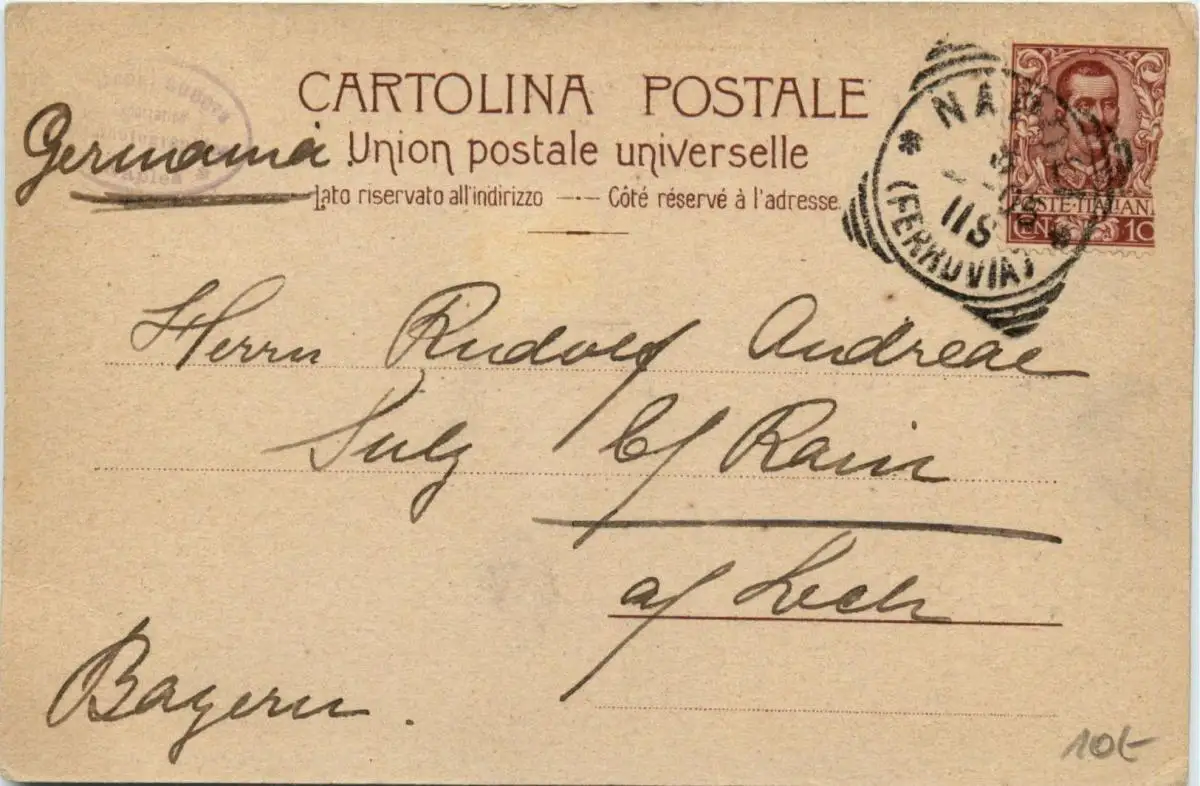 CARTOLINA POSTALE
Germania
Union postale universelle
Lato riservato all'indirizzo — Côté réservé à l'adresse
(FERROVIA)
11 S
POSTE·ITALIAN
CEN. 10
Herrn Rudolf Andreae
Sulz b/ Rain
a/ Lech
Bayern.